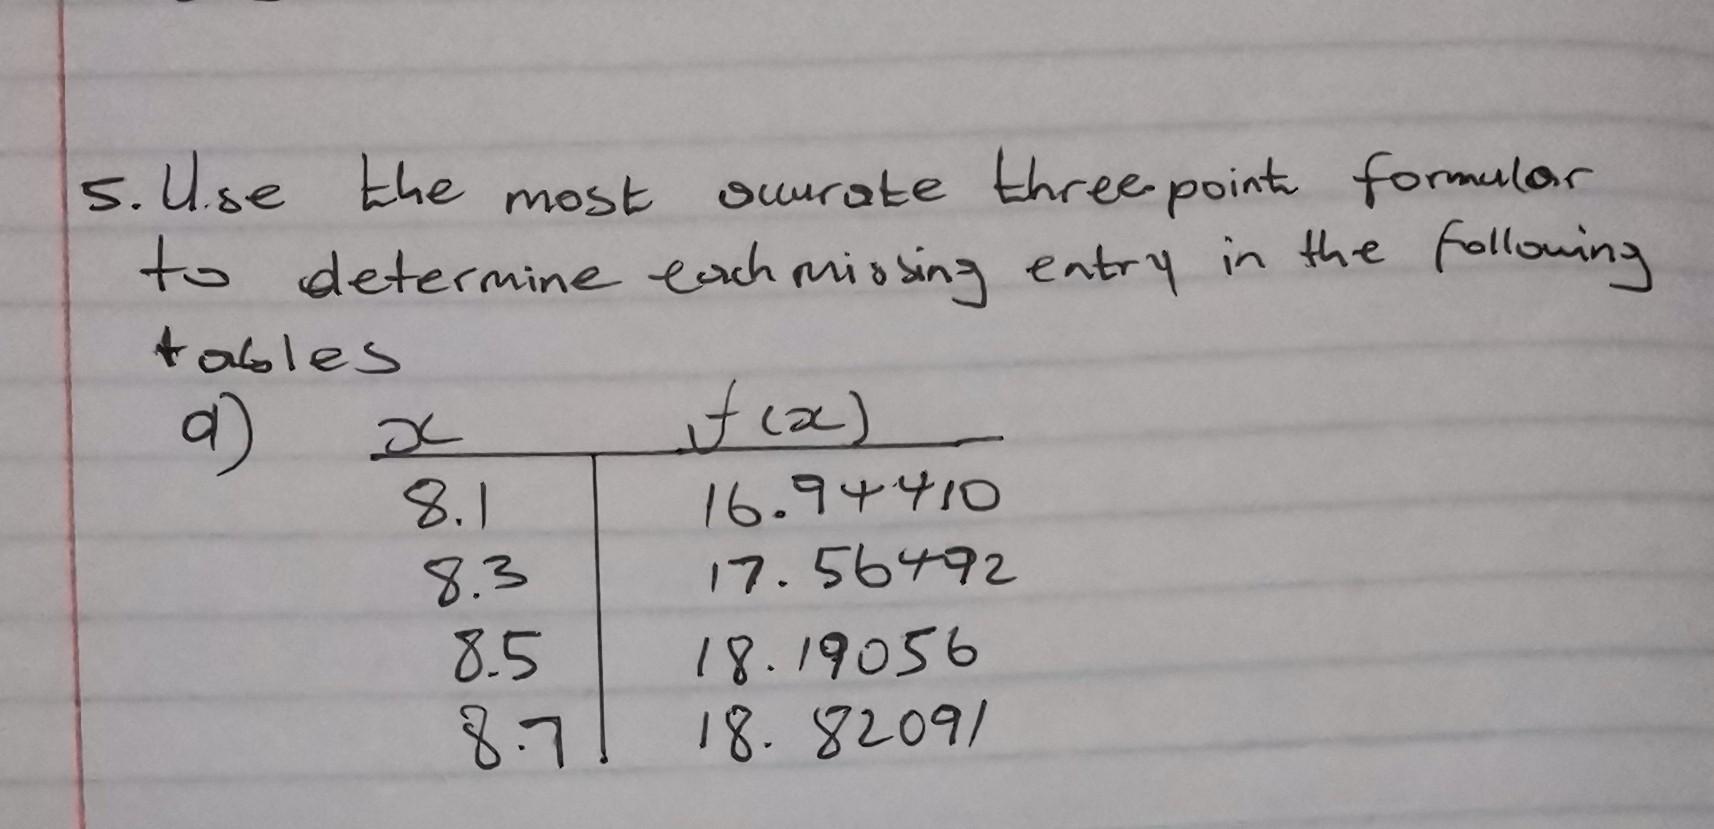 5. Use the most accurate three-point formular
to determine each missing entry in the following
tables
a) x f(x)
8.1 16.94410
8.3 17.56492
8.5 18.19056
8.7 18.82091